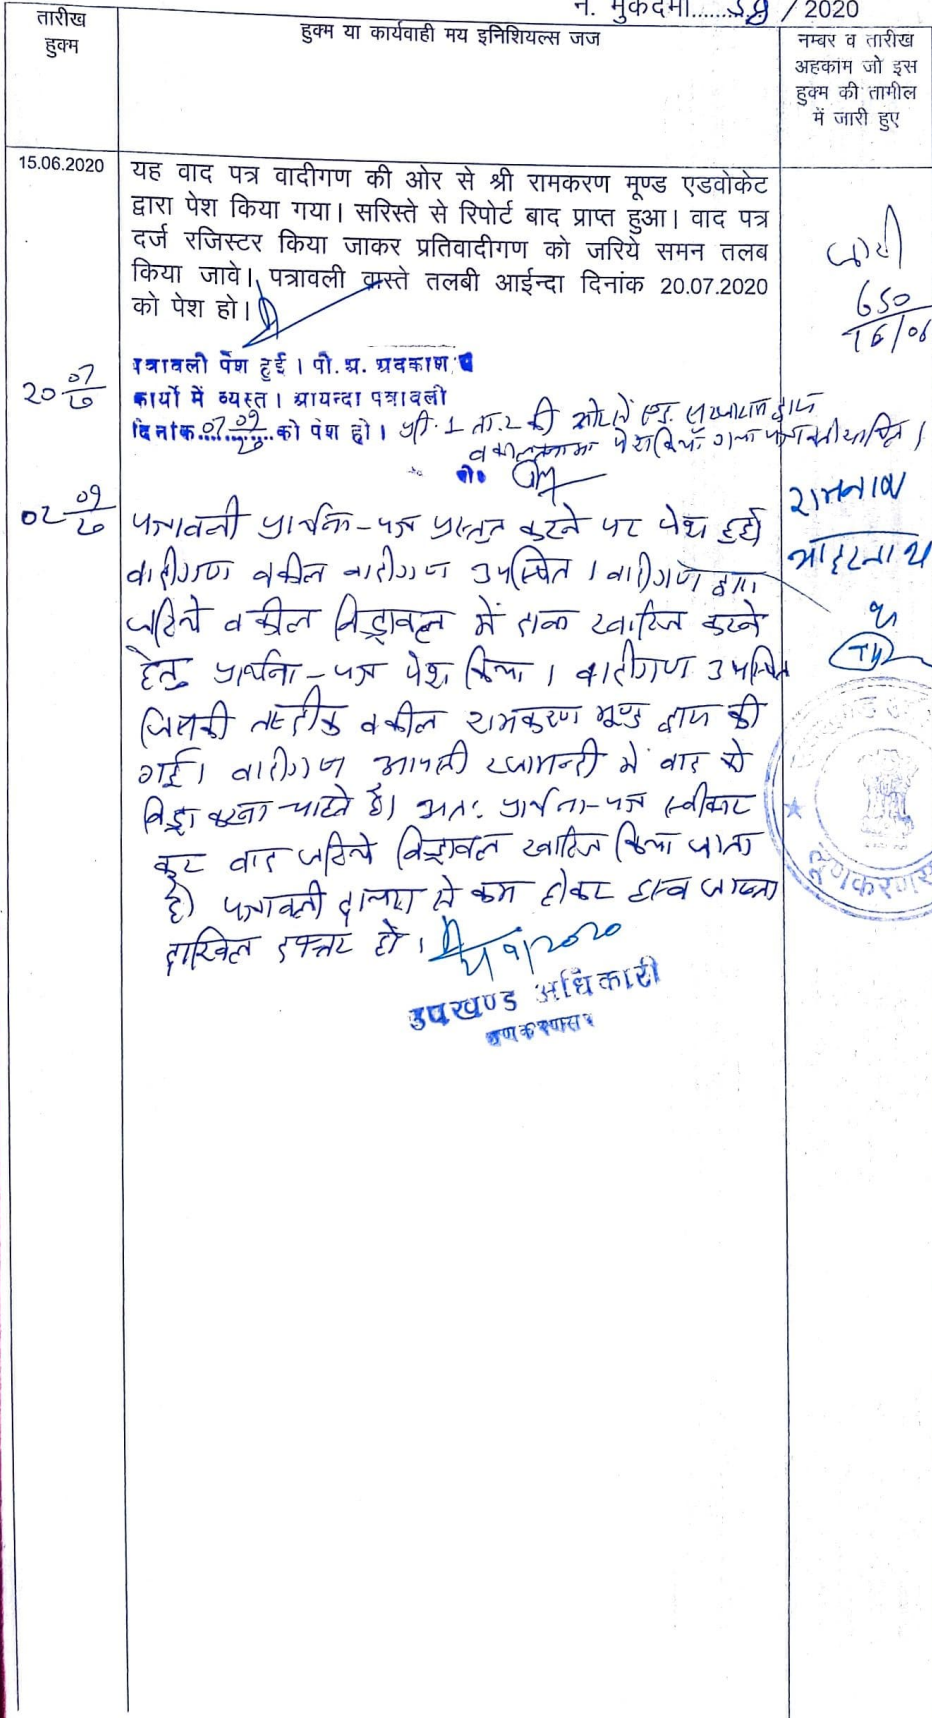 न. मुकदमा....... / 2020
तारीख
हुक्म
हुक्म या कार्यवाही मय इनिशियल्स जज
नम्बर व तारीख
अहकाम जो इस
हुक्म की तामील
में जारी हुए
15.06.2020
यह वाद पत्र वादीगण की ओर से श्री रामकरण मूण्ड एडवोकेट
द्वारा पेश किया गया। सरिस्ते से रिपोर्ट बाद प्राप्त हुआ। वाद पत्र
दर्ज रजिस्टर किया जाकर प्रतिवादीगण को जरिये समन तलब
किया जावे। पत्रावली वास्ते तलबी आईन्दा दिनांक 20.07.2020
को पेश हो।
जारी
650
16/06
20 07/20
पत्रावली पेश हुई। पी. अ. अवकाश
कार्यो में व्यस्त। आयन्दा पत्रावली
दिनांक 07 09/20 को पेश हो। प्रति. 1 ता. 2 की ओर से एड.
वकालतनामा पेश किया गया
02 09/20
पत्रावली प्रार्थना-पत्र प्रस्तुत करने पर पेश हुई
वादीगण वकील वादीगण उपस्थित। वादीगण द्वारा
जरिये वकील विड्रावल में दावा खारिज करने
हेतु प्रार्थना-पत्र पेश किया। वादीगण उपस्थित
जिसकी तस्दीक वकील रामकरण मूण्ड द्वारा की
गई। वादीगण आपसी रजामन्दी से वाद को
विड्रा करना चाहते है। अतः प्रार्थना-पत्र स्वीकार
कर वाद जरिये विड्रावल खारिज किया जाता
है। पत्रावली दायरा से कम होकर हस्ब जाप्ता
दाखिल दफ्तर हो।
2/9/2020
उपखण्ड अधिकारी
लूणकरणसर
रामनाथ
लूणकरणसर